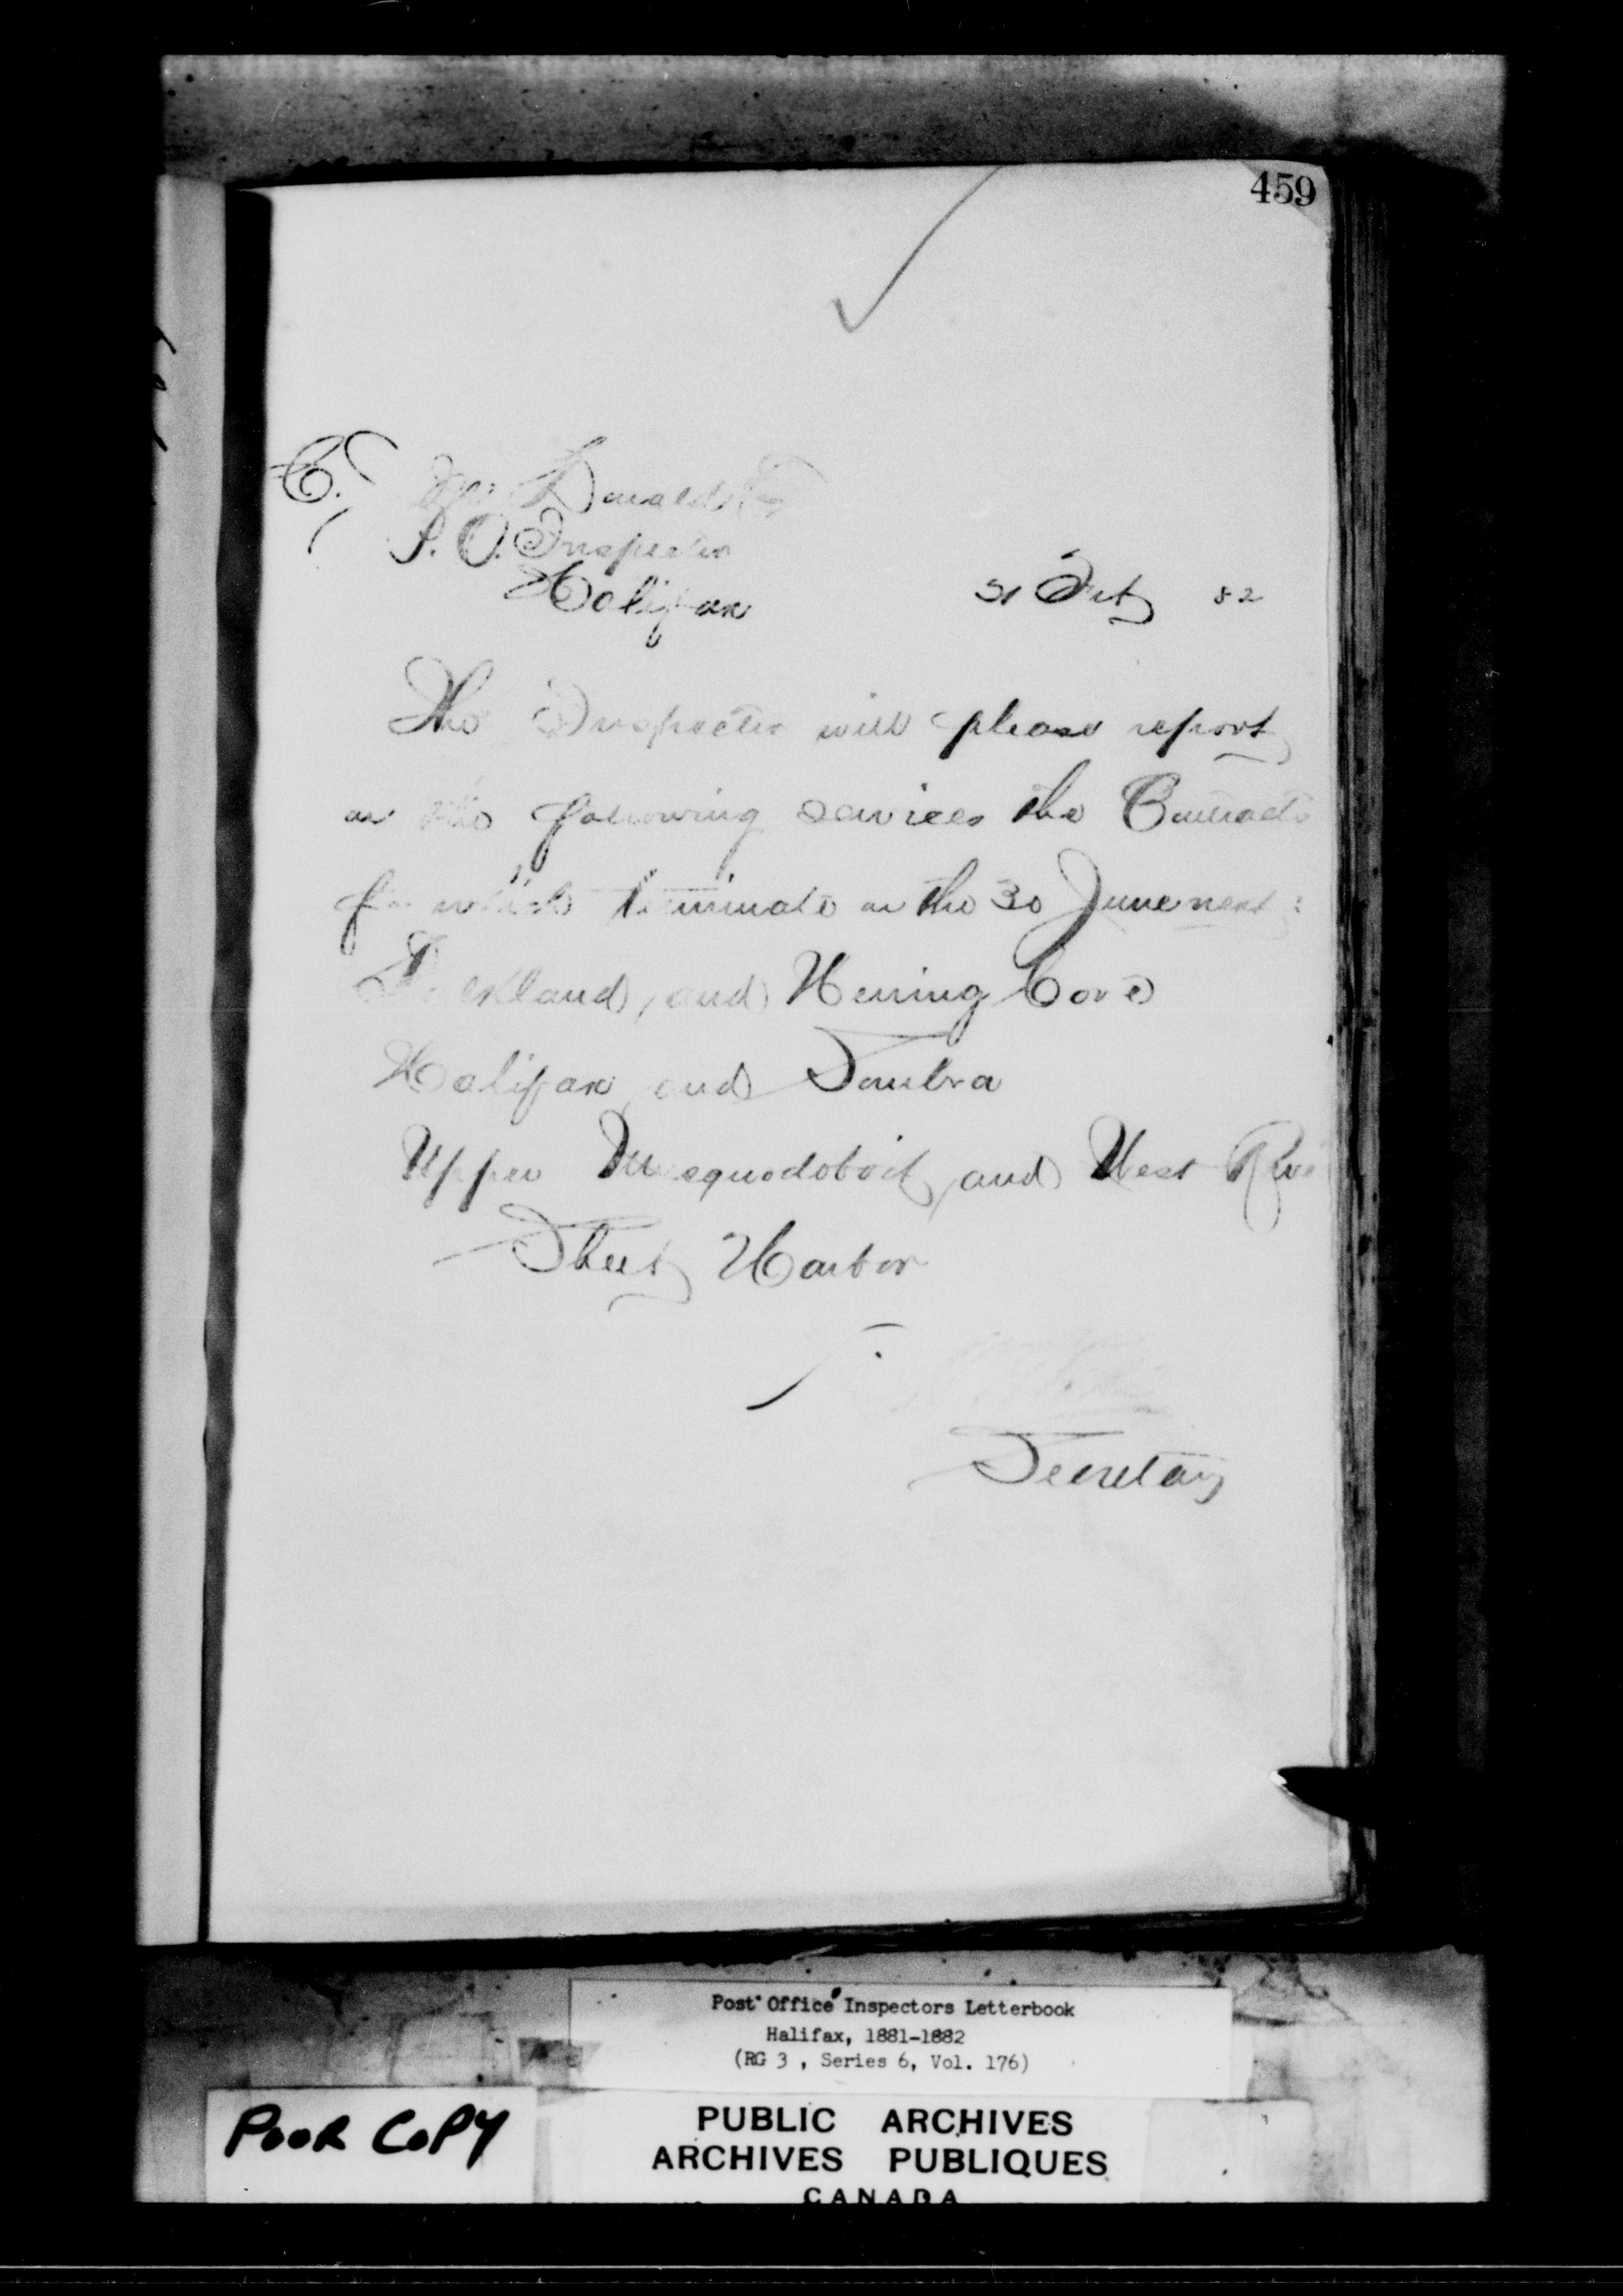 459
C.
Mc Donald Esq
P. O. Inspector
Halifax
Feby 82
The Inspector will please report
on the following services the Contracts
for which terminate on the 30 June next:
and Herring Cove
Halifax and Sambra
Upper Musquodoboit, and West River
Sheet Harbor
Secretary
Post Office Inspectors Letterbook
Halifax, 1881-1882
(RG 3 , Series 6, Vol. 176)
POOR COPY
PUBLIC ARCHIVES
ARCHIVES PUBLIQUES
CANADA